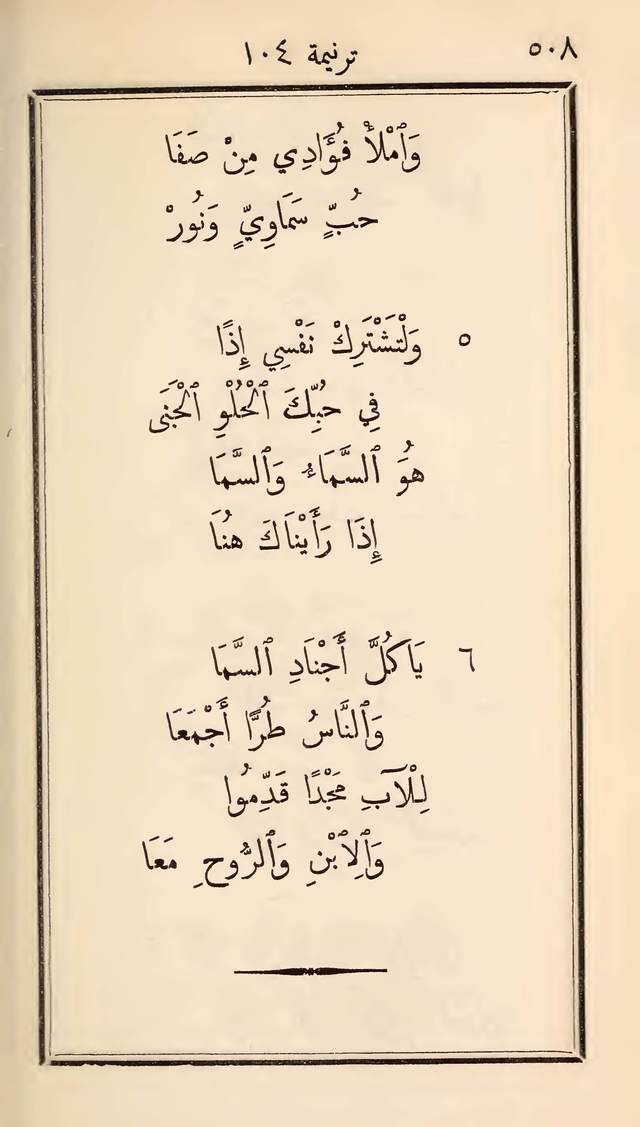 ٥٠٨ ترنيمة ١٠٤
وَٱمْلأْ فُؤَادِي مِنْ صَفَا
حُبٍّ سَمَاوِيٍّ وَنُورْ
٥ وَلْتَشْتَرِكْ نَفْسِي إِذًا
فِي حُبِّكَ ٱلْحُلْوِ ٱلْجَنَى
هُوَ ٱلسَّمَاءُ وَٱلسَّمَا
إِذَا رَأَيْنَاكَ هُنَا
٦ يَا كُلَّ أَجْنَادِ ٱلسَّمَا
وَٱلنَّاسُ طُرًّا أَجْمَعَا
لِلْآبِ مَجْدًا قَدِّمُوا
وَٱلِٱبْنِ وَٱلرُّوحِ مَعَا